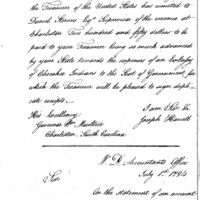 the Treasurer of the United States has remitted to
Daniel Stevens Esqr Supervisor of the revenue at
Charleston Two hundred and fifty dollars to be
paid to your Treasurer being so much advanced
by your State towards the expenses of an Embassy
of Cherokee Indians to the Seat of Government, for
which the Treasurer will be pleased to sign dupli-
cate receipts.
I am Sir &c
His Excellency
Joseph Howell
Governor Wm Moultrie
Charleston, South Carolina
W. D. Accountants Office
July 1st 1794
Sir
On the statement of an account